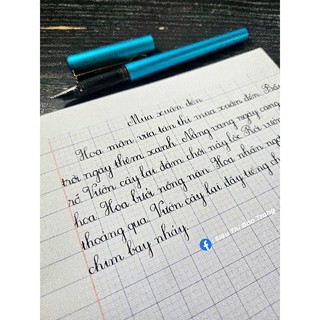 Mùa xuân đến
Hoa mận vừa tàn thì mùa xuân đến. Bầu
trời ngày thêm xanh. Nắng vàng ngày càng
rỡ. Vườn cây lại đâm chồi nảy lộc. Rồi vườn
hoa. Hoa bưởi nồng nàn. Hoa nhãn ngọt
thoảng qua. Vườn cây lại đầy tiếng ch
chim bay nhảy.